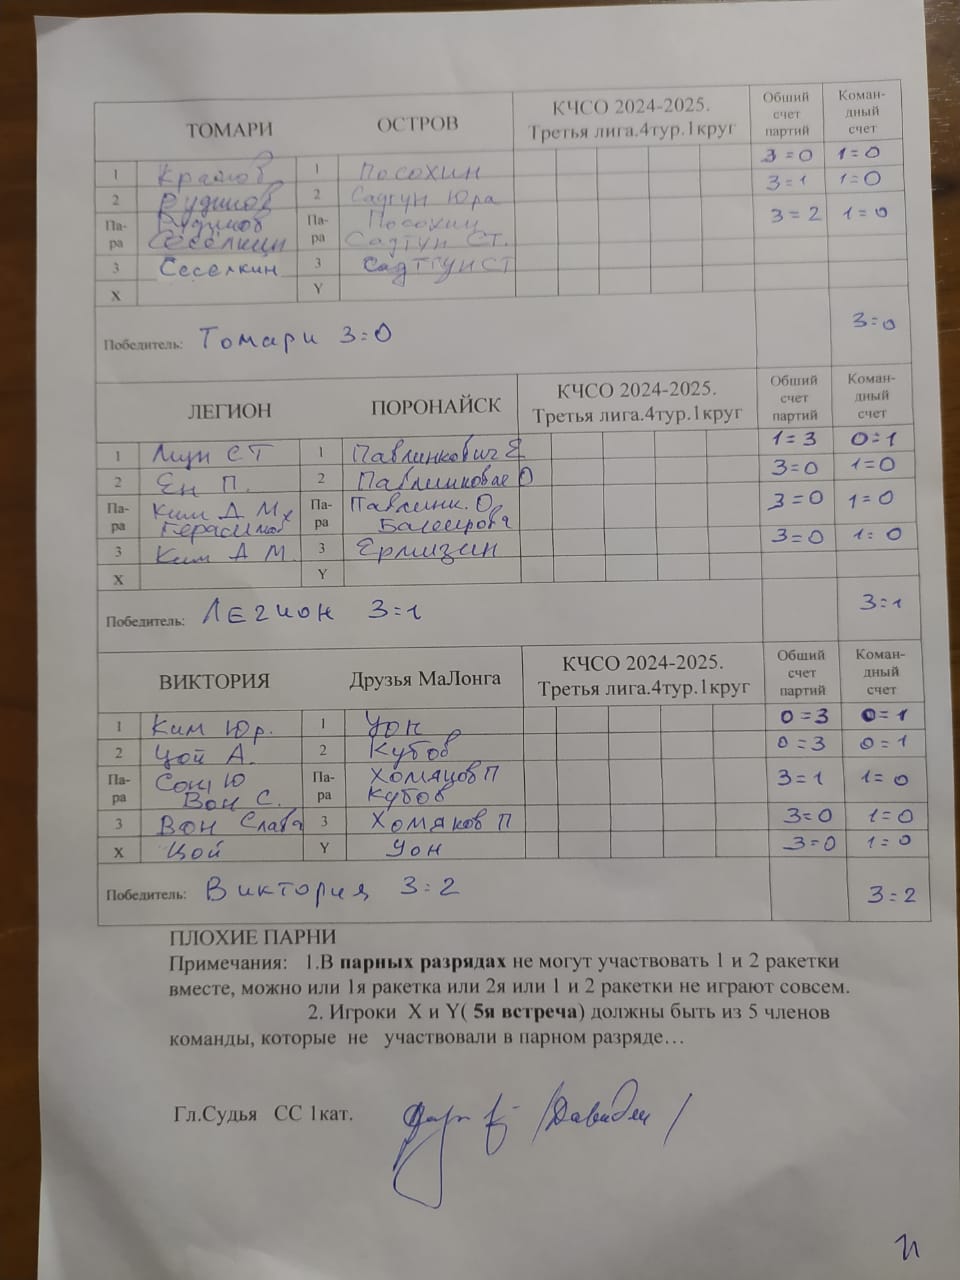 ТОМАРИ ОСТРОВ КЧСО 2024-2025. Третья лига.4тур.1круг Общий счет партий Коман-дный счет
1 1 Посохин 3=0 1=0
2 Рудинов 2 Садгун Юра 3=1 1=0
Па-ра Рудинов Па-ра Посохин 3=2 1=0
Сеселкин Садгун СТ.
3 Сеселкин 3 Садтгун СТ
X Y
Победитель: Томари 3=0 3=0
ЛЕГИОН ПОРОНАЙСК КЧСО 2024-2025. Третья лига.4тур.1круг Общий счет партий Коман-дный счет
1 СТ 1 Павлинкович Е 1=3 0=1
2 Ен П. 2 О 3=0 1=0
Па-ра Ким Д М Па-ра Павлинк. О. 3=0 1=0
Герасимов Башеирова
3 Ким Д М. 3 Ермизин 3=0 1=0
X Y
Победитель: Легион 3=1 3=1
ВИКТОРИЯ Друзья МаЛонга КЧСО 2024-2025. Третья лига.4тур.1круг Общий счет партий Коман-дный счет
1 Ким Юр. 1 Уон 0=3 0=1
2 Цой А. 2 Кубов 0=3 0=1
Па-ра Ю Па-ра Хомяков П 3=1 1=0
Вон С. Кубов
3 Вон Слава 3 Хомяков П 3=0 1=0
X Цой Y Уон 3=0 1=0
Победитель: Виктория 3=2 3=2
ПЛОХИЕ ПАРНИ
Примечания: 1.В парных разрядах не могут участвовать 1 и 2 ракетки
вместе, можно или 1я ракетка или 2я или 1 и 2 ракетки не играют совсем.
2. Игроки X и Y( 5я встреча) должны быть из 5 членов
команды, которые не участвовали в парном разряде…
Гл.Судья СС 1кат.